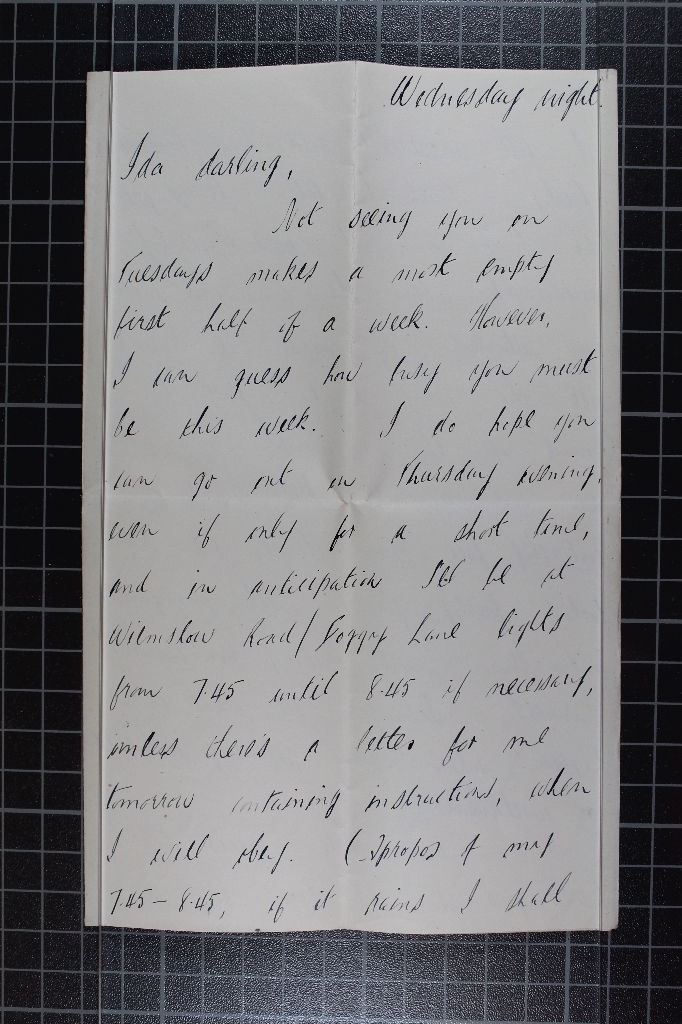 Wednesday night.
Ida darling,
Not seeing you on
Tuesdays makes a most empty
first half of a week. However,
I can guess how busy you must
be this week. I do hope you
can go out on Thursday evening,
even if only for a short time,
and in anticipation I'll be at
Wilmslow Road/Foggy Lane lights
from 7.45 until 8.45 if necessary,
unless there's a letter for me
tomorrow containing instructions, when
I will obey. (Apropos of my
7.45 - 8.45, if it rains I shall